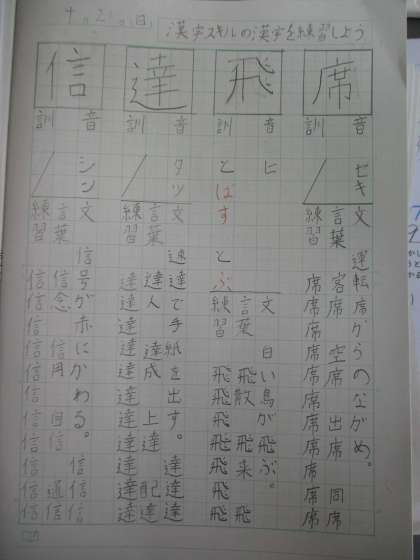 4月21日(日)
漢字スキルの漢字を練習しよう
席
音 セキ
訓 /
文 運転席からのながめ。
言葉 客席 空席 出席 同席
練習 席席席席席席席席席席
飛
音 ヒ
訓 とばす とぶ
文 白い鳥が飛ぶ。
言葉 飛散 飛来 飛
練習 飛飛飛飛飛飛飛
達
音 タツ
訓 /
文 速達で手紙を出す。達達
言葉 達人 達成 上達 配達
練習 達達達達達達達達達達達
信
音 シン
訓 /
文 信号が赤にかわる。信信信
言葉 信念 信用 回信 通信
練習 信信信信信信信信信信信